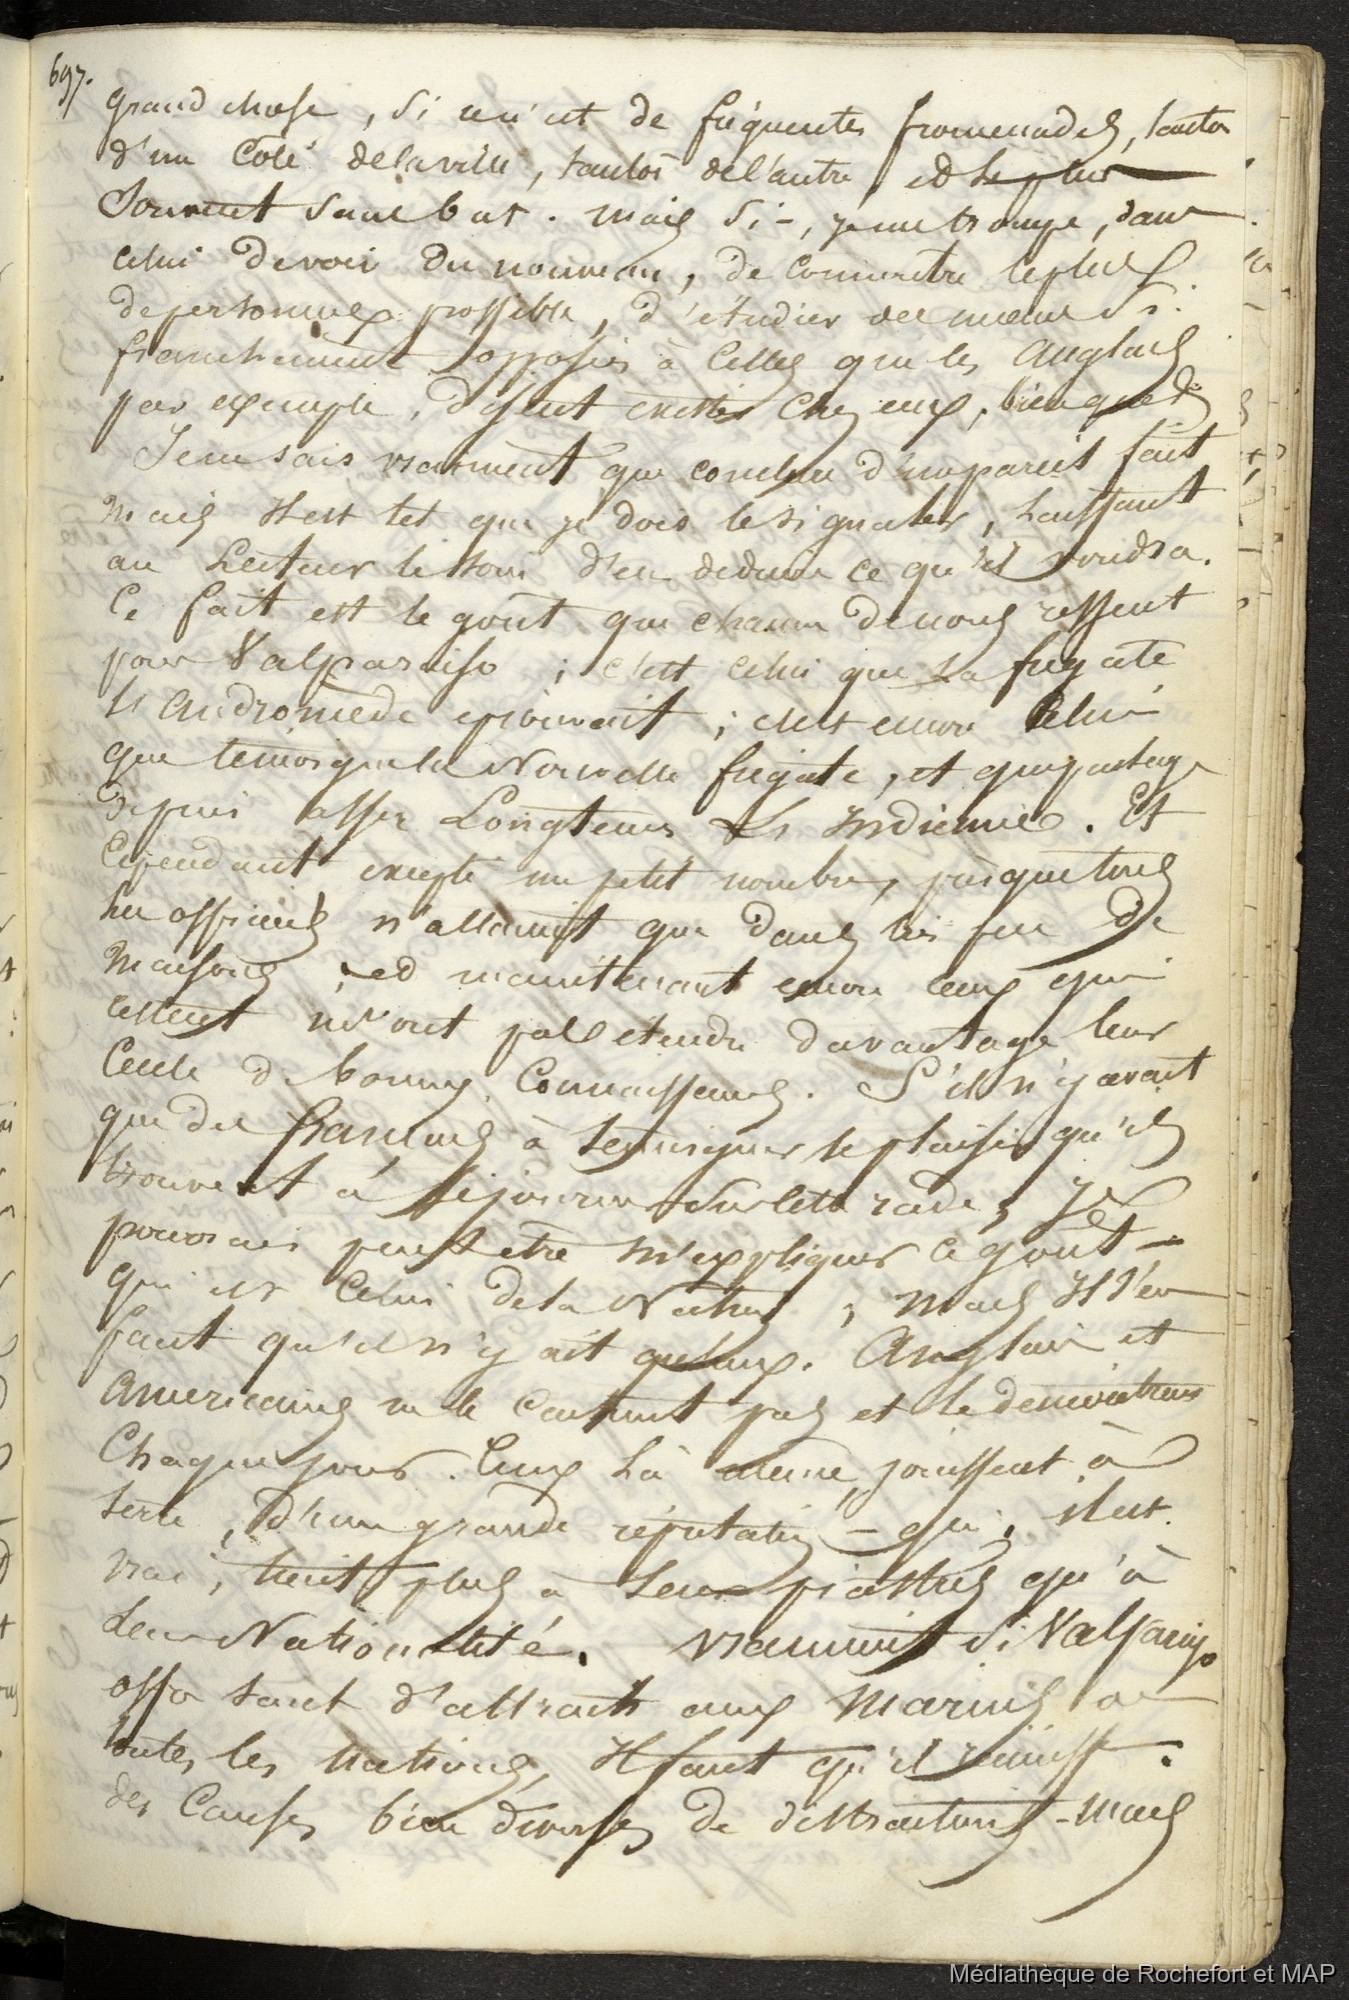 697.
grand chose, si ce n'est de fréquentes promenades, tantot
d'un Coté de la ville, tantôt de l'autre, et le plus
Souvent sans but. mais si, je me trompe, dans
celui de voir du nouveau, de connaitre le plus
de personnes possible, d'étudier des mœurs si
franchement opposées à Celles que les Anglais
par exemple, disent exister Chez eux, bien que
Je ne sais vraiment que conclure d'un pareil fait
Mais Il est tel que je dois le signaler, laissant
au Lecteur le soin d'en deduire ce qu'il voudra.
Ce fait est le goût que chacun de nous ressent
pour Valparaiso ; c'est celui que la frégate
L'Andromède eprouvait ; c'est encore Celui
que témoigne la Nouvelle frégate, et que partage
depuis assez Longtems L'Indienne. Et
Cependant excepté un petit nombre, presque tous
les officiers n'allaient que dans très peu de
Maisons ; et maintenant encore ceux qui
restent n'ont pas étendu davantage leur
Cercle de bonnes Connaissances. S'il n'y avait
que des français à témoigner le plaisir qu'ils
trouvent à séjourner sur cette rade, Je
pourrais peut être m'expliquer ce goût
qui est Celui de la Nation ; mais Il s'en
faut qu'il n'y ait qu'eux. Anglais et
Americains ne le Cachent pas et le démontrent
Chaque jour. Ceux là même, jouissent à
terre, d'une grande réputation - qui, il est
vrai, tient plus à leurs piastres qu'à
leur Nationalité. vraiment si Valparaiso
offre tant d'attraits aux Marins de
toutes les Nations, Il faut qu'il réunisse
des Causes bien diverses de distractions - Mais
Médiathèque de Rochefort et MAP